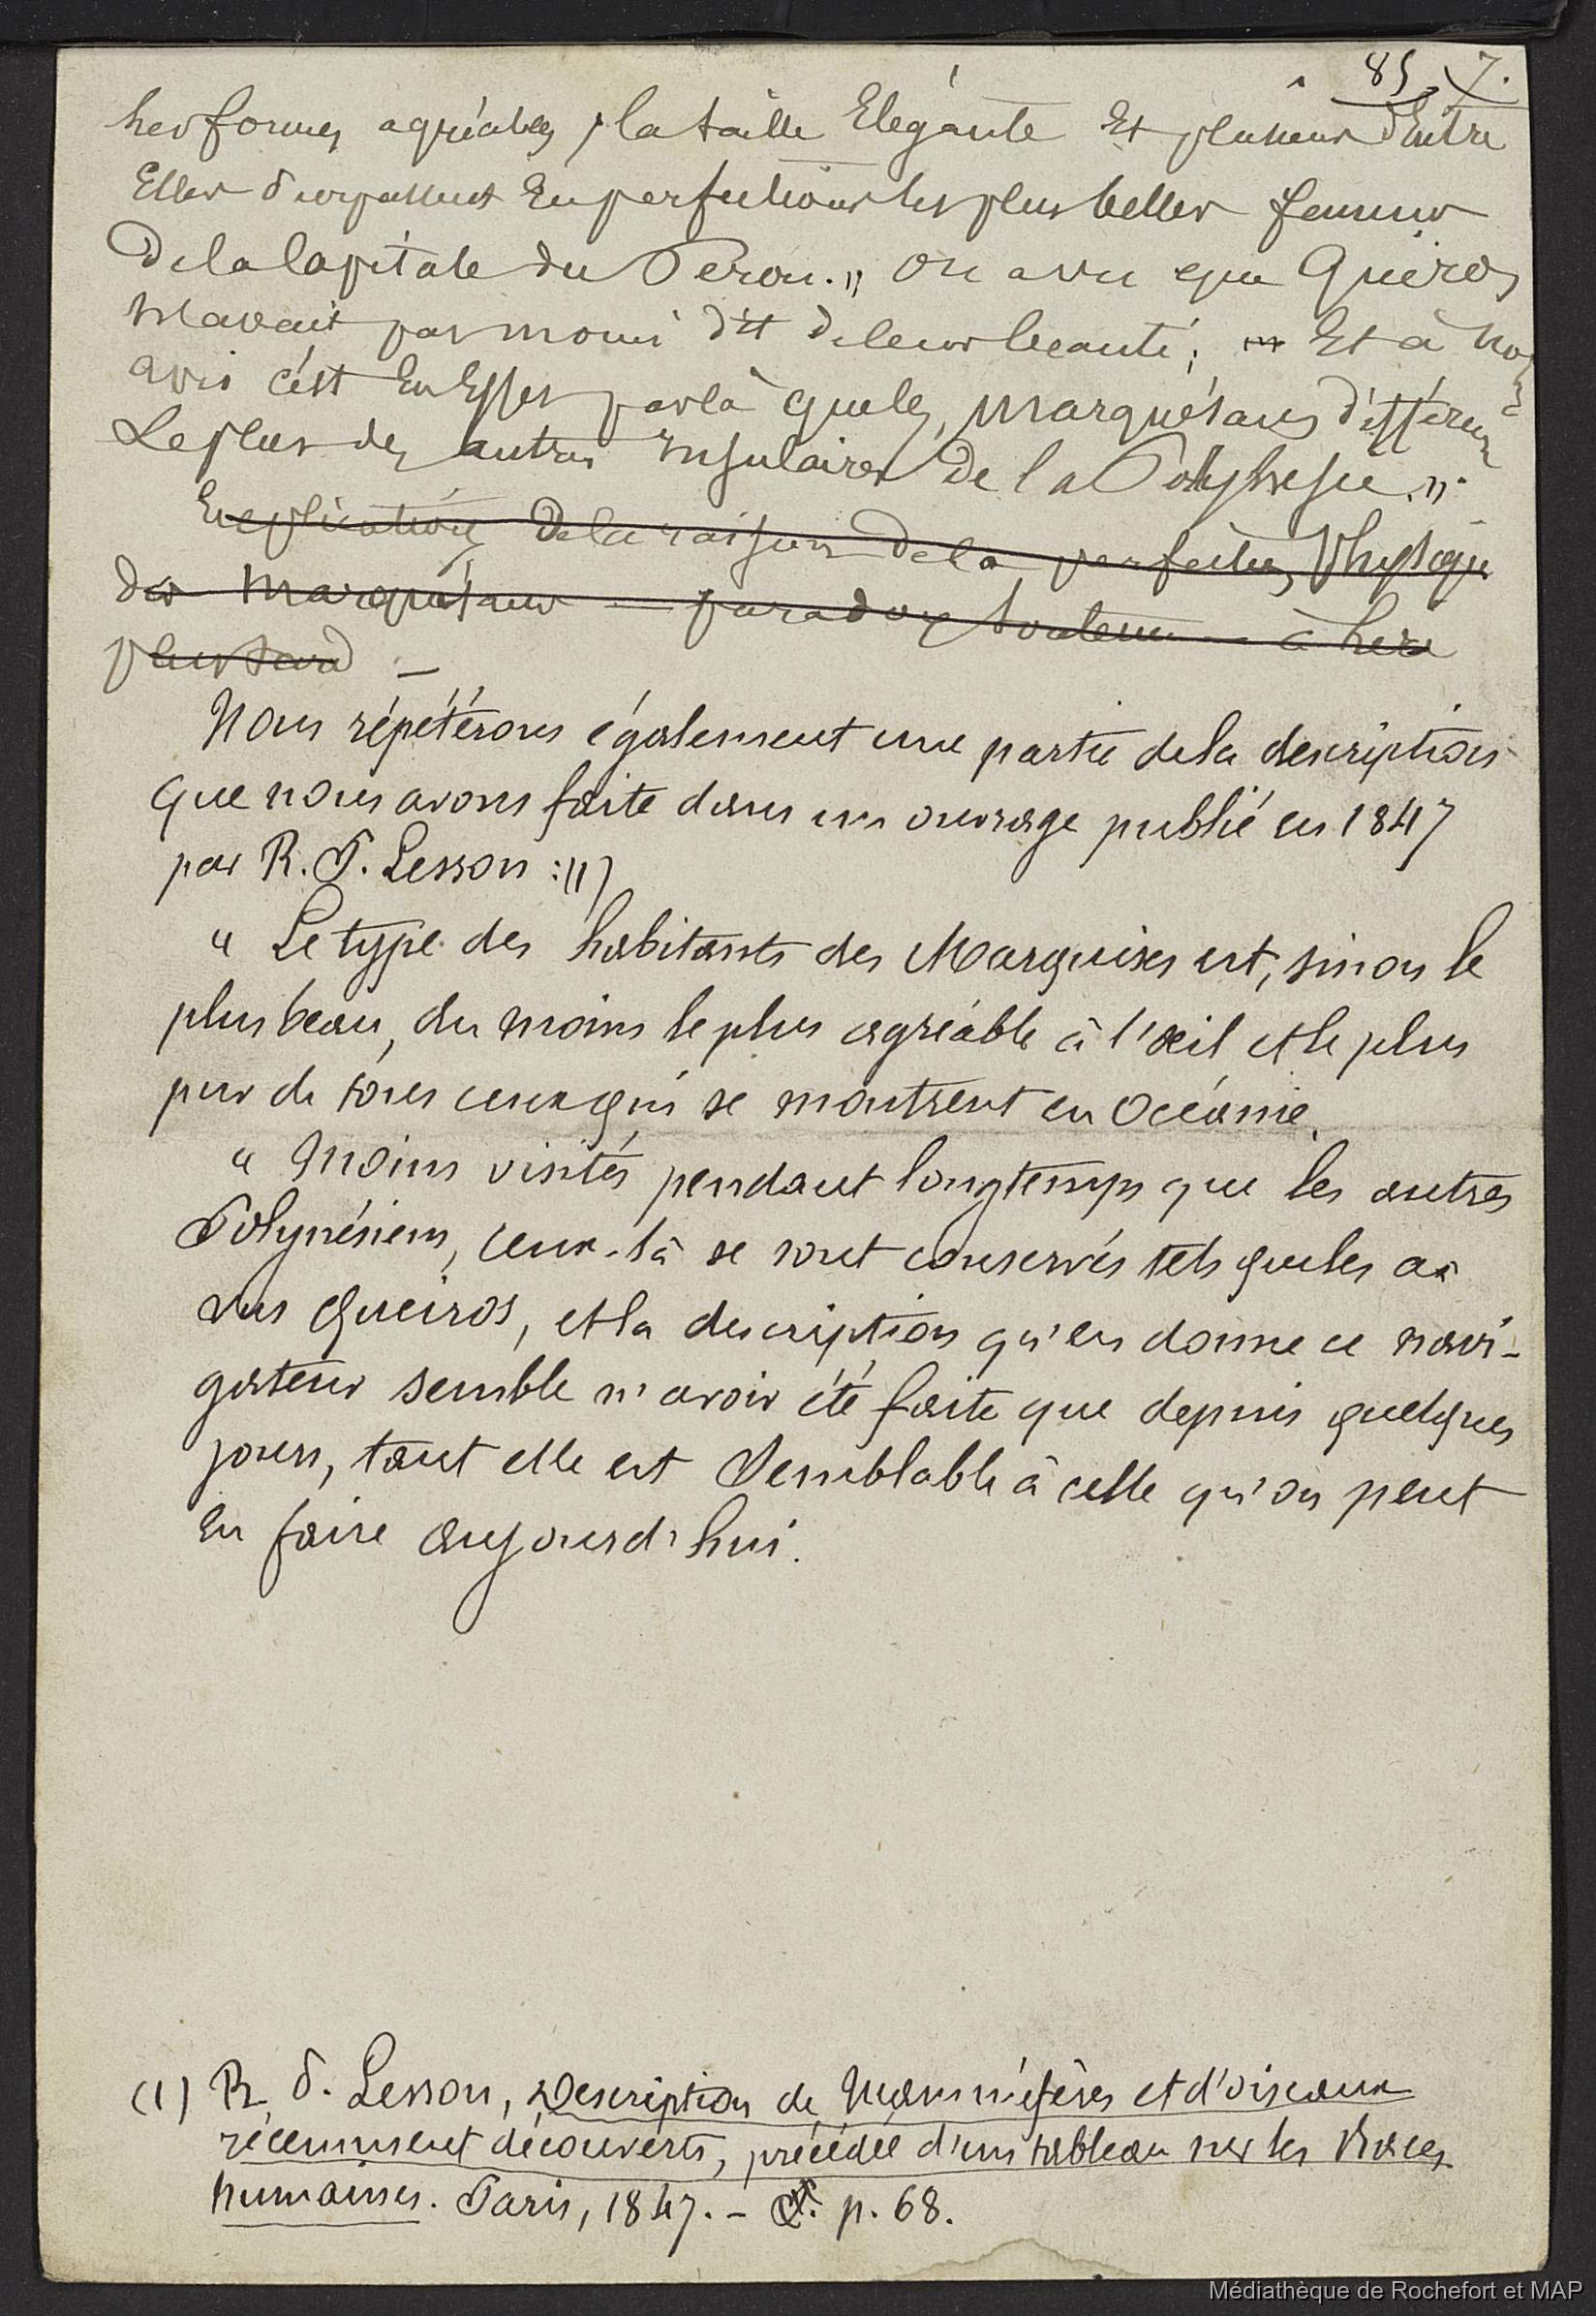 85 7.
les formes agréables, la taille Elégante Et plusieurs d'Entre
Elles surpassent En perfections les plus belles femmes
de la Capitale du Pérou. » on a vu que Quéiros
n'avait pas moins dit de leur beauté; Et à notre
avis c'est En Effet par là que les marquésans diffèrent
Le plus des autres insulaires de la Polynésie. »
Explication de la raison de la perfection Physique
des marquésans — paradoxe soutenu — à lire
plus tard —
Nous répétérons également une partie de la description
que nous avons faite dans un ouvrage publié en 1847
par R. P. Lesson : (1)
« Le type des habitants des Marquises est, sinon le
plus beau, du moins le plus agréable à l'œil et le plus
pur de tous ceux qui se montrent en Océanie.
« Moins visités pendant longtemps que les autres
Polynésiens, ceux-là se sont conservés tels que les a
vus Queiros, et la description qu'en donne ce navi-
gateur semble n'avoir été faite que depuis quelques
jours, tant elle est semblable à celle qu'on peut
en faire aujourd'hui.
(1) R. P. Lesson, Description de Mammifères et d'oiseaux
récemment découverts, précédée d'un tableau sur les Races
humaines. Paris, 1847. – p. 68.
Médiathèque de Rochefort et MAP